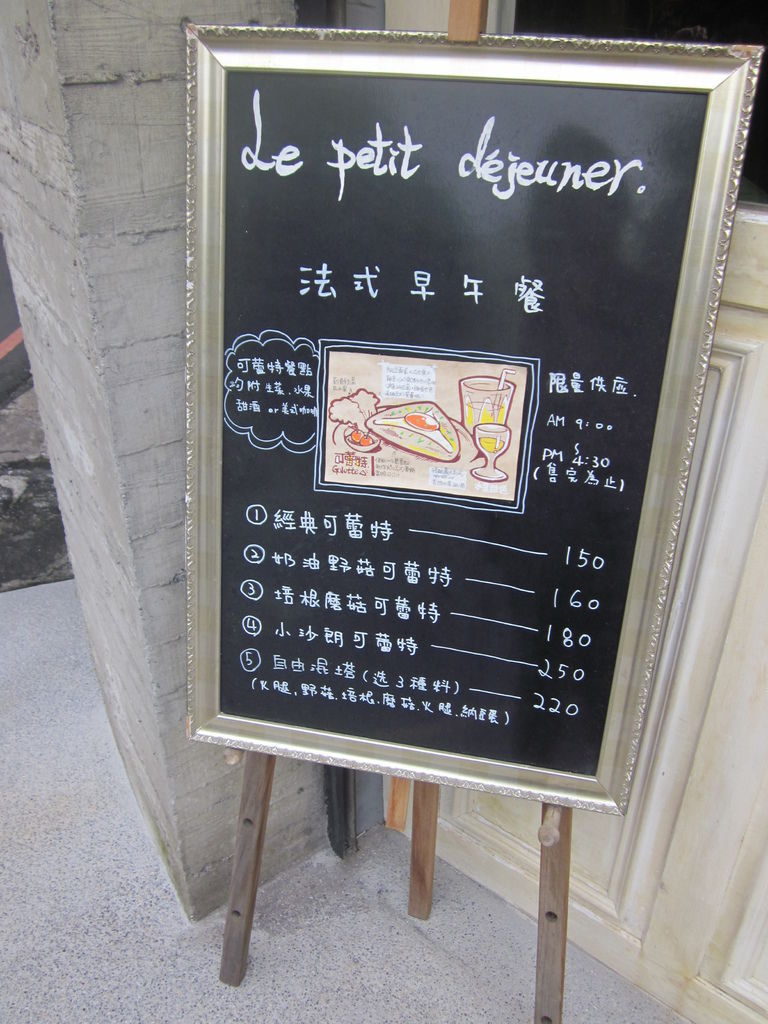 Le petit déjeuner.
法式早午餐
可蕾特餐點
均附生菜.水果
甜酒 or 美式咖啡
可蕾特
Galette
限量供應.
AM 9:00
PM 4:30
(售完為止)
① 經典可蕾特 150
② 奶油野菇可蕾特 160
③ 培根磨菇可蕾特 180
④ 小沙朗可蕾特 250
⑤ 自由混塔(选3種料) 220
(火腿.野菇.培根.磨菇.火腿.納